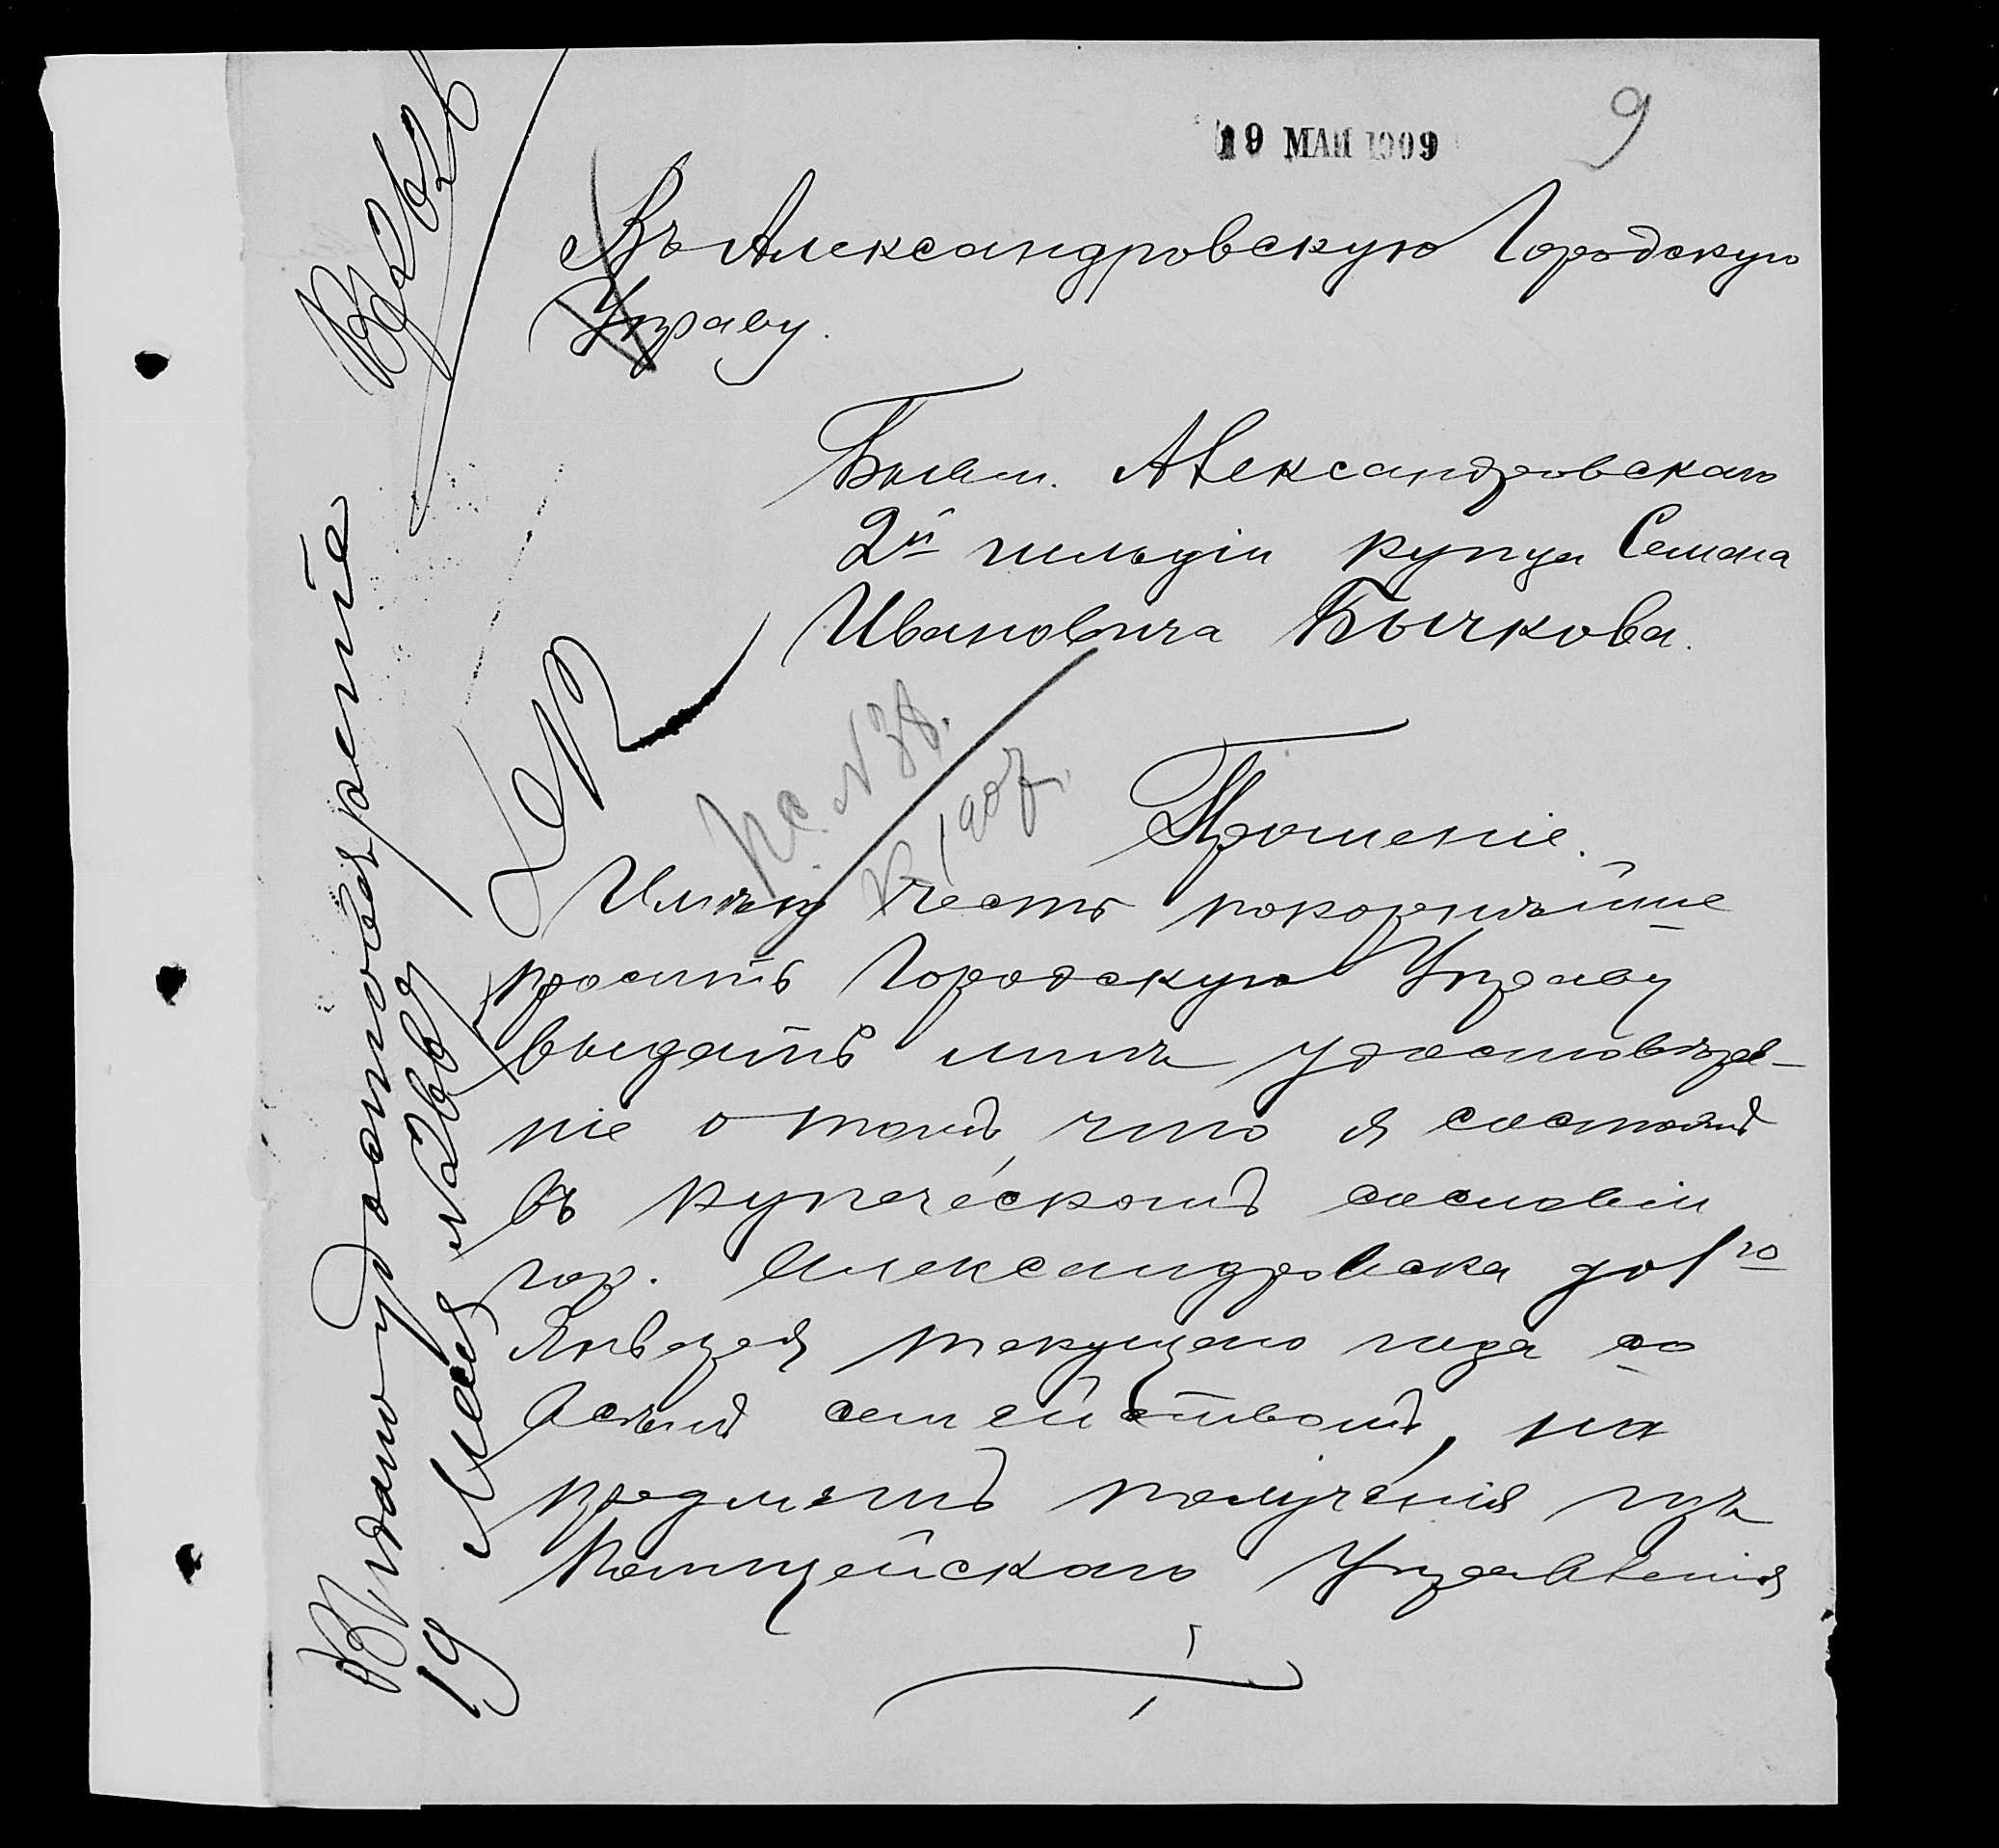 19 МАЙ 1909
9
Въ Александровскую Городскую
Управу.
Бывш. Александровскаго
2й гильдіи купца Семена
Ивановича Бычкова.
Прошеніе.
Имѣю честь покорнѣйше
просить Городскую Управу
выдать мнѣ удостовѣре-
ніе о томъ, что я состоялъ
въ купеческомъ сословіи
гор. Александровска до 1го
Января текущаго года со
всѣмъ семействомъ, на
предметъ полученія изъ
Полицейскаго Управленія
Выдано удостовѣреніе
19 Мая №